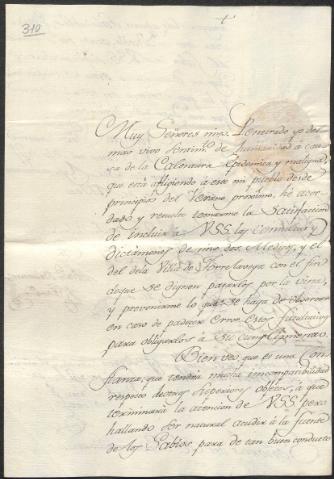 310
Muy Señores mios. Penetrado yo del
mas vivo sentim.to de humanidad a cau-
sa de la Calentura Epidemica y maligna,
que está afligiendo à este mi pueblo desde
principios del Verano proximo, hè acor-
dado y resuelto tomarme la satisfaccion
de incluir à VSS. las consultas y
dictámenes de mis dos Medicos, y el
del de la Villa de Torrelavega con el fin
de que se dignen pasarlos por la vista,
y prevenirme lo que se haya de observar
en caso de padecer error estos facultativos
para obligarlos à su cumplimiento.
Bien veo que es una Con-
fianza, que tendrá mucha incompatibilidad
respecto de otros superiores objetos, à que
terminará la atencion de VSS. pero
hallando ser natural acudir à la fuente
de los Sabios, para de tan buen conducto